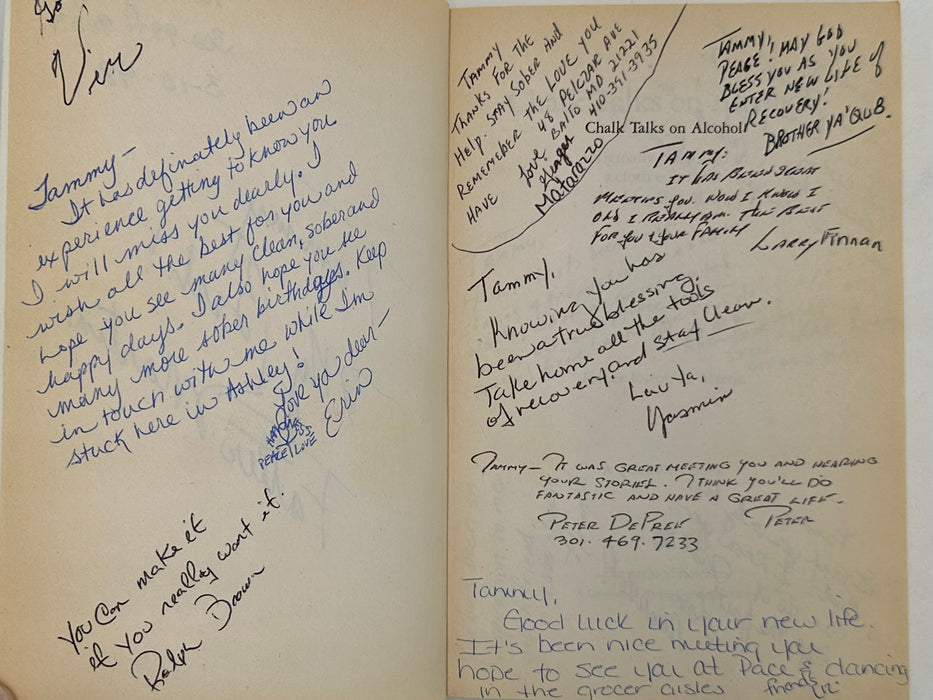 go
Viv
Tammy-
It has definately been an
experience getting to know you
I will miss you dearly. I
wish all the best for you and
hope you see many clean, sober and
happy days. I also hope you see
many more sober birthdays. Keep
in touch with me while I'm
stuck here in Ashley!
Love you dear-
Erin
PEACE LOVE
You Can make it
if you really want it.
Ralph Brown
TAMMY
THANKS FOR THE
HELP. STAY SOBER AND
REMEMEBER THE LOVE YOU
HAVE
48 PELCZAR AVE
BALTO MD 21221
410-391-3935
Love
Ginger
Matarazzo
TAMMY,
PEACE! MAY GOD
BLESS YOU AS YOU
ENTER NEW LIFE OF
RECOVERY!
BROTHER YA'QUB.
Chalk Talks on Alcohol
TAMMY:
IT HAS BEEN GREAT
MEETING YOU. NOW I KNOW I
OLD I REALLY AM. THE BEST
FOR YOU & YOUR FAMILY
LARRY FINNAN
Tammy,
Knowing you has
been a true blessing.
Take home all the tools
of recovery and stay clean.
Luv Ya,
Yasmin
TAMMY- IT WAS GREAT MEETING YOU AND HEARING
YOUR STORIES. I THINK YOU'LL DO
FANTASTIC AND HAVE A GREAT LIFE.
PETER DEPREE PETER
301.469.7233
Tammy,
Good luck in your new life.
It's been nice meeting you
hope to see you at Pace & dancing
in the grocer aisles
friends